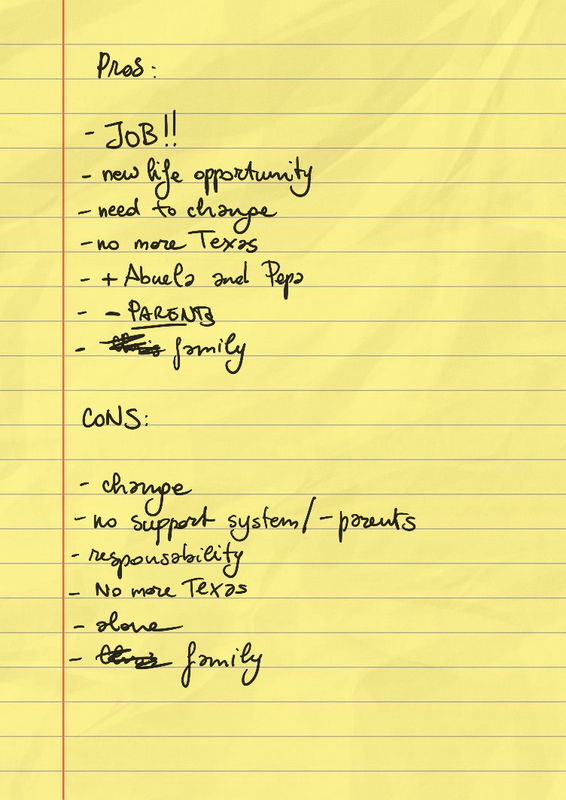 Pros:
- JOB!!
- new life opportunity
- need to change
- no more Texas
- + Abuela and Pepa
- - PARENTS
- family
CONS:
- change
- no support system/ - parents
- responsability
- No more Texas
- alone
- family